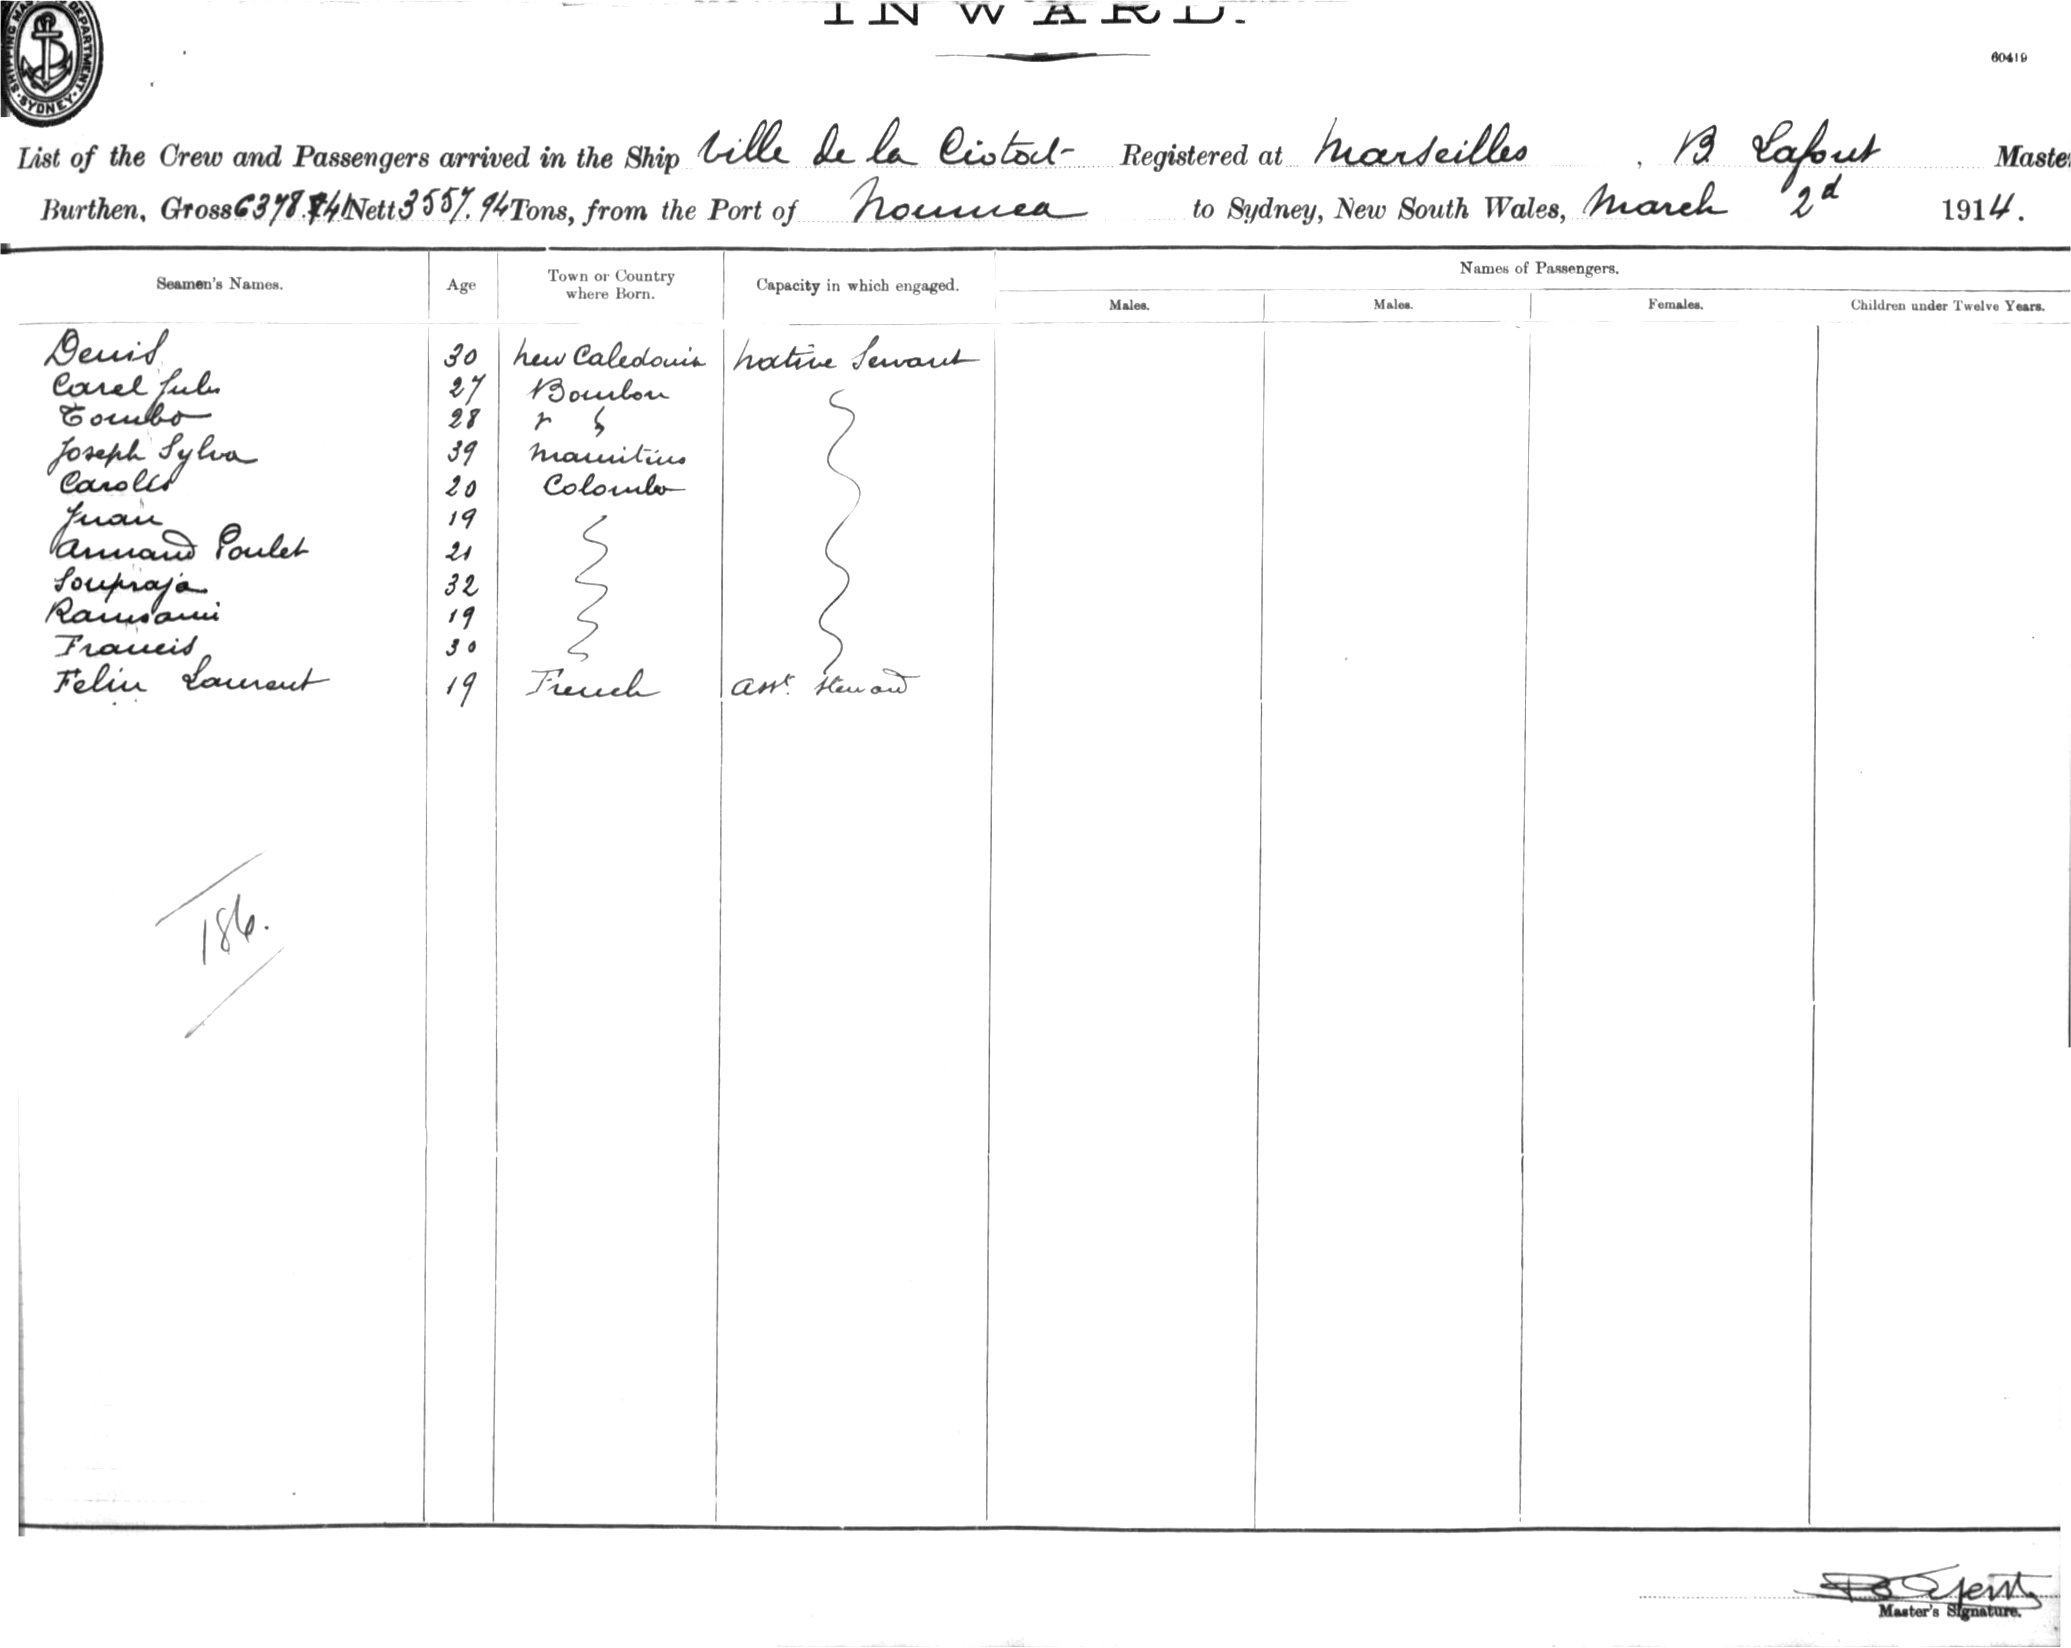 INWARD.
SHIPPING MASTER'S DEPARTMENT SYDNEY
60419
List of the Crew and Passengers arrived in the Ship Ville de la Ciotat Registered at Marseilles, B Lafont Maste
Burthen, Gross 6378.74 Nett 3557.94 Tons, from the Port of Noumea to Sydney, New South Wales, March 2d 1914.
Seamen's Names. Age Town or Country where Born. Capacity in which engaged. Names of Passengers.
Males. Males. Females. Children under Twelve Years.
Denis 30 New Caledonia Native Servant
Carel Jules 27 Bourbon
Tombo 28
Joseph Sylva 39 Mauritius
Carolis 20 Colombo
Juan 19
Armand Poulet 21
Soupraja 32
Ramsami 19
Francis 30
Felin Laurent 19 French Asst. Steward
186.
Master's Signature.